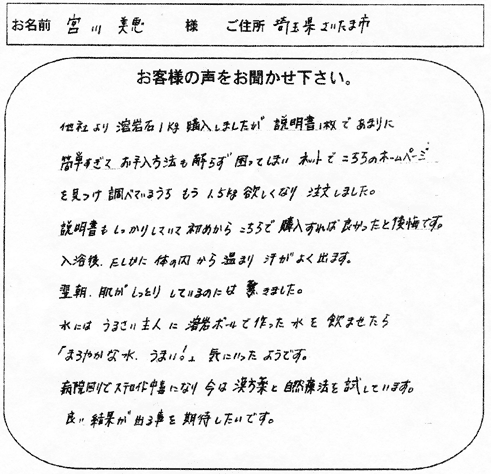 お名前 宮川 美恵 様 ご住所 埼玉県さいたま市
お客様の声をお聞かせ下さい。
他社より溶岩石1kg購入しましたが説明書1枚であまりに
簡単すぎてお手入方法も解らず困ってしまい ネットでこちらのホームページ
を見つけ調べているうちもう1.5kg欲しくなり注文しました。
説明書もしっかりしていて初めからこちらで購入すれば良かったと後悔です。
入浴後、たしかに体の内から温まり汗がよく出ます。
翌朝、肌がしっとりしているのには驚きました。
水にはうるさい主人に溶岩ボールで作った水を飲ませたら
「まろやかな水、うまい!」気にいったようです。
病院回りでステロイド中毒になり今は漢方薬と自然療法を試しています。
良い結果が出る事を期待したいです。